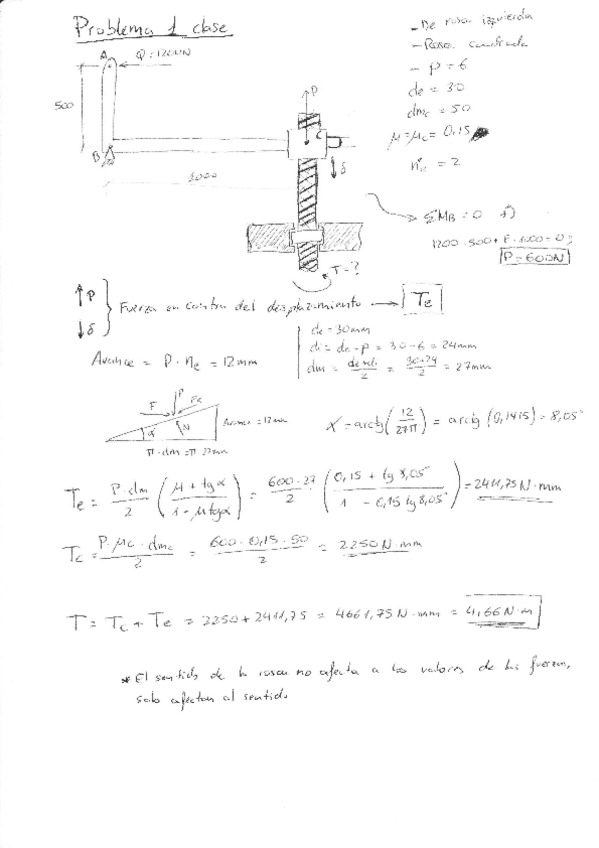 Problema 1 clase
- De rosca izquierda
- Rosca cuadrada
- p = 6
de = 30
dmc = 50
μ = μc = 0,15
ne = 2
A
Q = 1200N
500
B
P
C
δ
1000
T = ?
ΣMB = 0
1200·500 + P·1000 = 0;
P = 600N
P
δ
Fuerza en contra del desplazamiento → Te
Avance = P · ne = 12mm
de = 30mm
di = de - p = 30 - 6 = 24mm
dm = de+di/2 = 30+24/2 = 27mm
F
P
N
α
Avance = 12mm
π·dm = π·27mm
α = arctg(12/27π) = arctg (0,1415) = 8,05°
Te = P·dm/2 (μ + tgα / 1 - μtgα) = 600·27/2 (0,15 + tg 8,05° / 1 - 0,15 tg 8,05°) = 2411,75 N·mm
Tc = P·μc·dmc/2 = 600·0,15·50/2 = 2250 N·mm
T = Tc + Te = 2250 + 2411,75 = 4661,75 N·mm = 4,66 N·m
* El sentido de la rosca no afecta a los valores de las fuerzas,
solo afectan al sentido